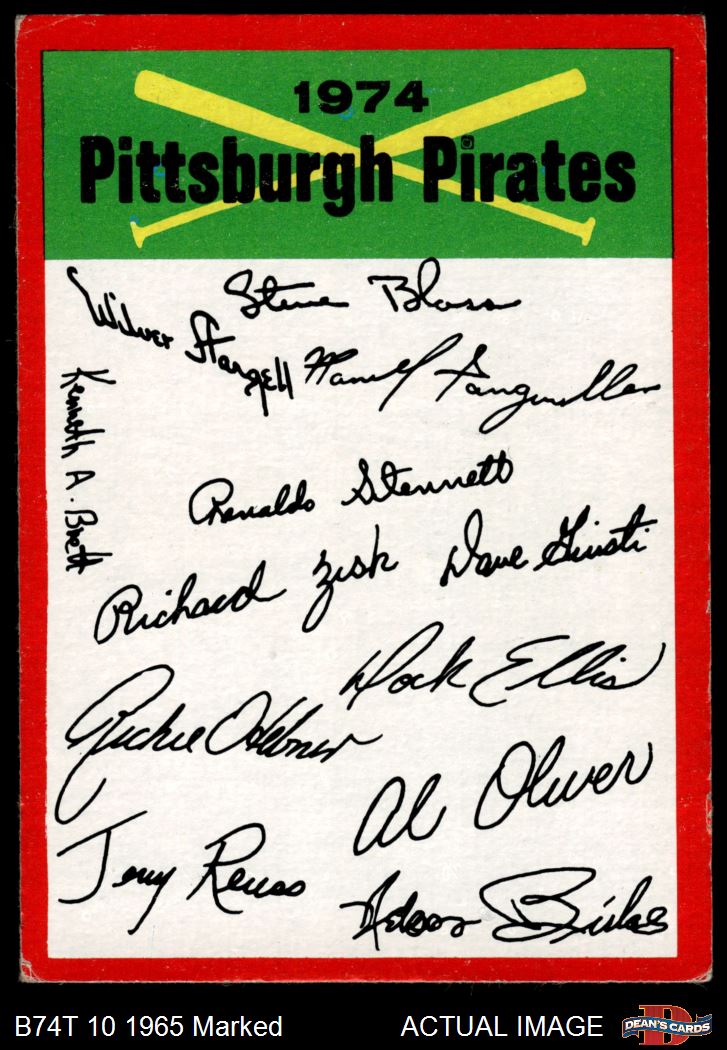 1974
Pittsburgh Pirates
Steve Blass
Wilver Stargell
Manuel Sanguillen
Kenneth A. Brett
Renaldo Stennett
Richard Zisk
Dave Giusti
Dock Ellis
Richie Hebner
Al Oliver
Jerry Reuss
Nelson Briles
B74T 10 1965 Marked
ACTUAL IMAGE
D
DEAN'S CARDS